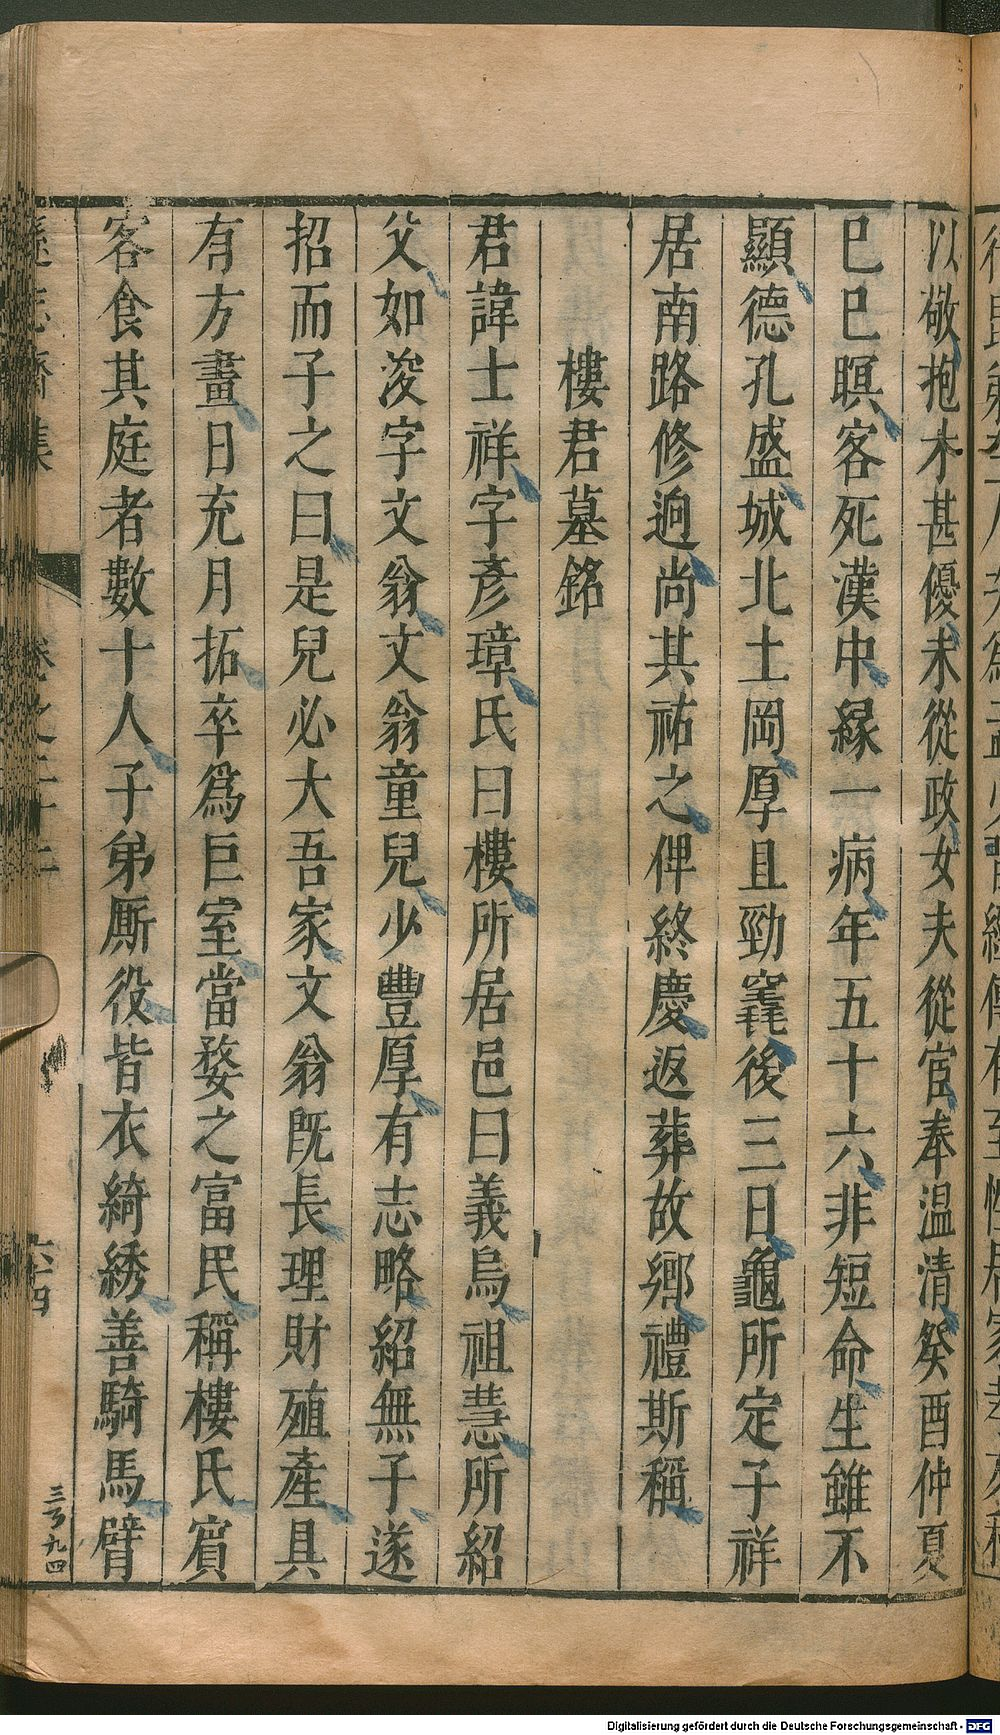 以敬抱木甚優未從政女夫從宦奉温清癸酉仲夏
巳巳暝客死漢中縁一病年五十六非短命生雖不
顯德孔盛城北土岡厚且勁竁後三日龜所定子祥
居南路修逈尚其祐之俾終慶返葬故鄉禮斯稱
樓君墓銘
君諱士祥字彥璋氏曰樓所居邑曰義烏祖慧所紹
父如浚字文翁文翁童兒少豐厚有志略紹無子遂
招而子之曰是兒必大吾家文翁旣長理財殖產具
有方畫日充月拓卒爲巨室當婺之富民稱樓氏賓
客食其庭者數十人子弟厮役皆衣綺綉善騎馬臂
卷之二十二
六四
三ㄎ九四
Digitalisierung gefördert durch die Deutsche Forschungsgemeinschaft - DFG